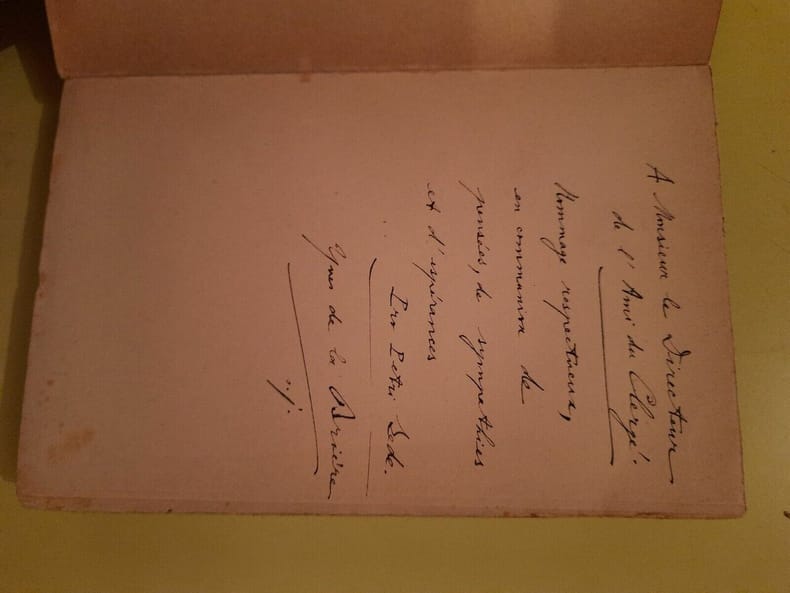 A Monsieur le Directeur
de l'Ami du Clergé.
Hommage respectueux,
en communion de
pensées, de sympathies
et d'espérances
Pro Petri Sede.
Yves de la Brière
s.j.